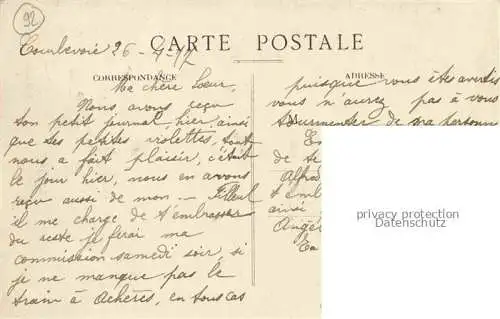 92
Courbevoie 26-4-17
CARTE POSTALE
CORRESPONDANCE
ADRESSE
Ma chère Soeur,
Nous avons reçu
ton petit journal hier, ainsi
que ses petites violettes, tout
nous a fait plaisir, c'était
le jour hier, nous en avons
reçu aussi de mon Filleul
il me charge de t'embrasser
du reste je ferai ma
commission samedi soir, si
je ne manque pas le
train à Achères, en tous cas
puisque vous êtes avertis
vous n'aurez pas à vous
tourmenter de ma personne
En
de
Alfred
t'emb
ainsi
Angè
Ta
privacy protection
Datenschutz